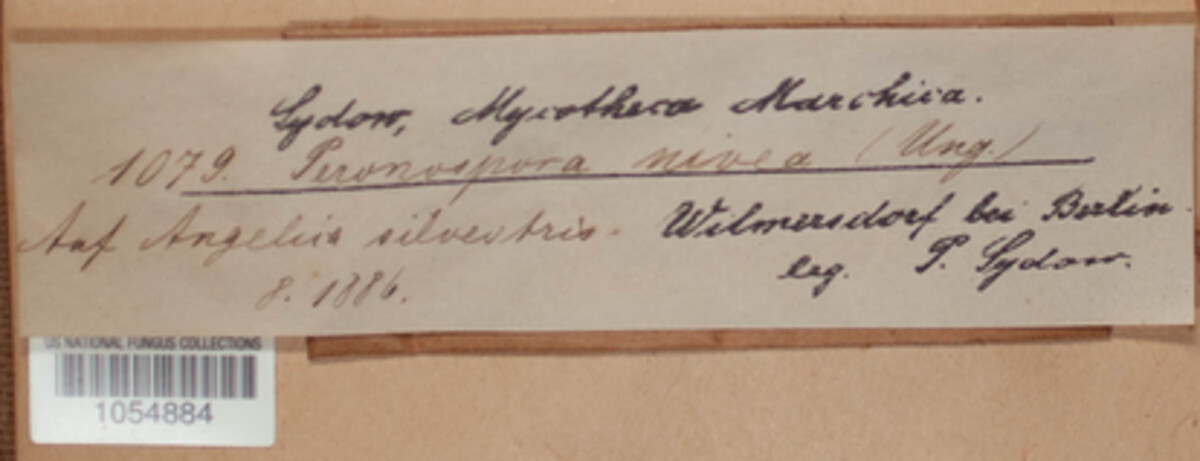 Sydow, Mycotheca Marchica.
1079. Peronospora nivea (Ung.)
Auf Angelica silvestris. Wilmersdorf bei Berlin.
8. 1886. leg. P. Sydow.
US NATIONAL FUNGUS COLLECTIONS
1054884